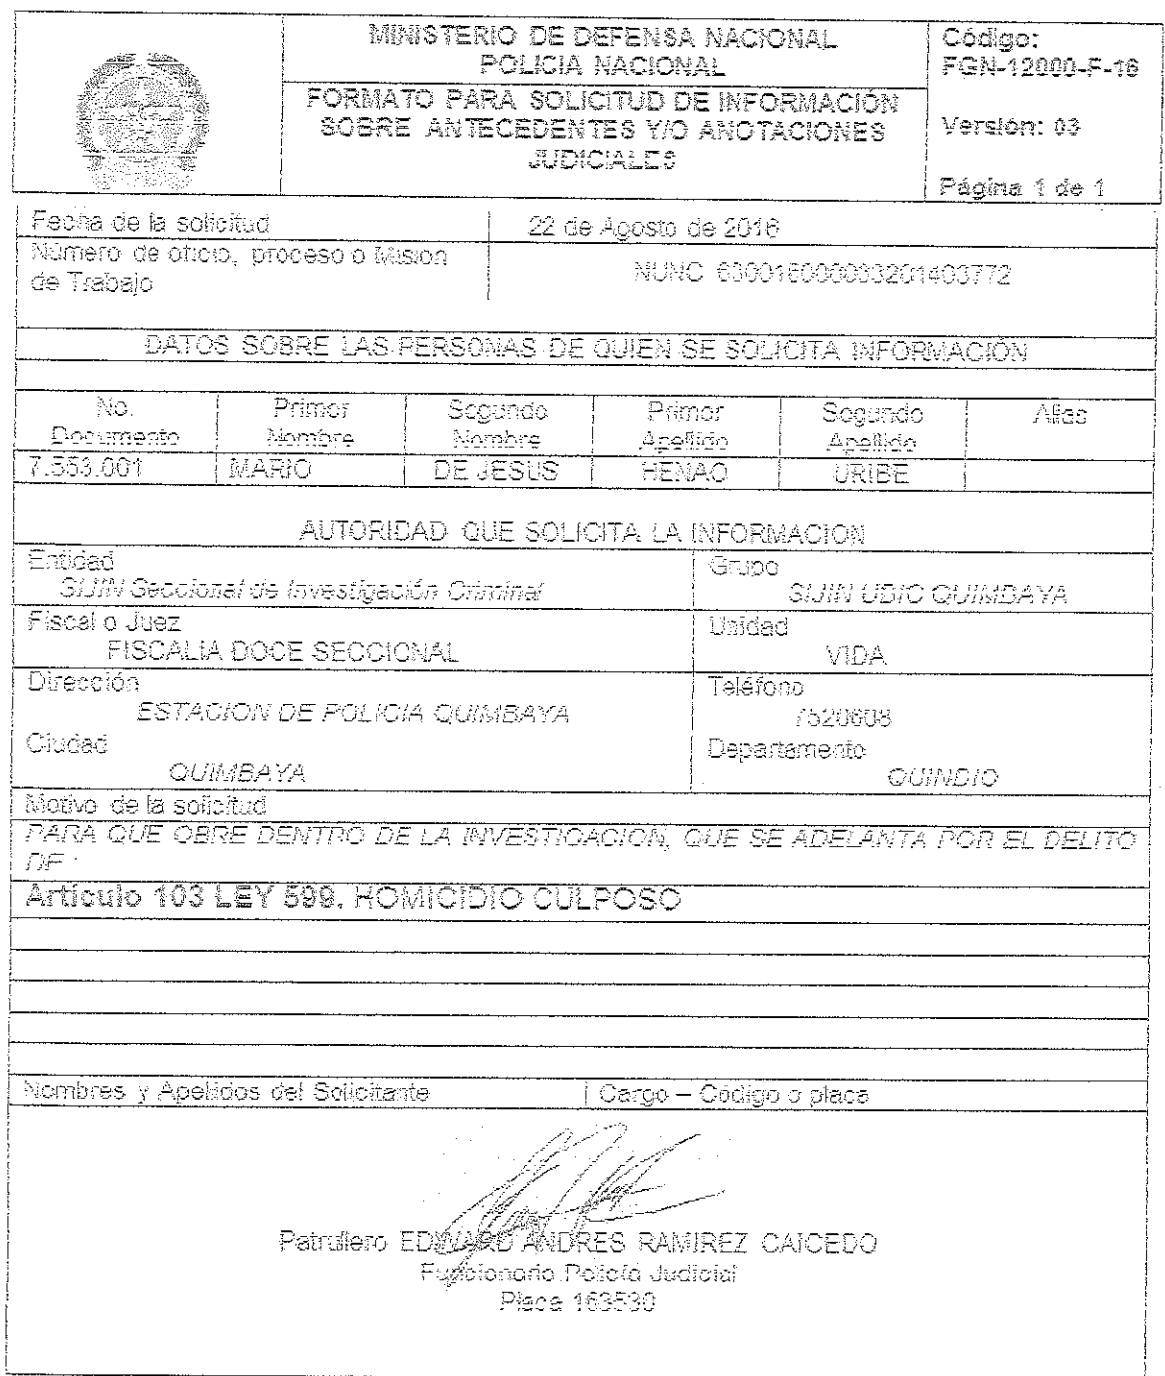 MINISTERIO DE DEFENSA NACIONAL
POLICIA NACIONAL
FORMATO PARA SOLICITUD DE INFORMACIÓN
SOBRE ANTECEDENTES Y/O ANOTACIONES
JUDICIALES
Código:
FGN-12000-F-16
Versión: 03
Página 1 de 1
Fecha de la solicitud
22 de Agosto de 2016
Número de oficio, proceso o Mision
de Trabajo
NUNC
DATOS SOBRE LAS PERSONAS DE QUIEN SE SOLICITA INFORMACIÓN
No.
Documento
Primer
Nombre
Segundo
Nombre
Primer
Apellido
Segundo
Apellido
Alias
7.553.001
MARIO
DE JESUS
HENAO
URIBE
AUTORIDAD QUE SOLICITA LA INFORMACION
Entidad
SIJIN Seccional de Investigación Criminal
Grupo
SIJIN UBIC QUIMBAYA
Fiscal o Juez
FISCALIA DOCE SECCIONAL
Unidad
VIDA
Dirección
ESTACION DE POLICIA QUIMBAYA
Teléfono
7520608
Ciudad
QUIMBAYA
Departamento
QUINDIO
Motivo de la solicitud
PARA QUE OBRE DENTRO DE LA INVESTIGACION, QUE SE ADELANTA POR EL DELITO
DE :
Artículo 103 LEY 599. HOMICIDIO CULPOSO
Nombres y Apellidos del Solicitante
Cargo – Código o placa
Patrullero EDWARD ANDRES RAMIREZ CAICEDO
Funcionario Policía Judicial
Placa 163530